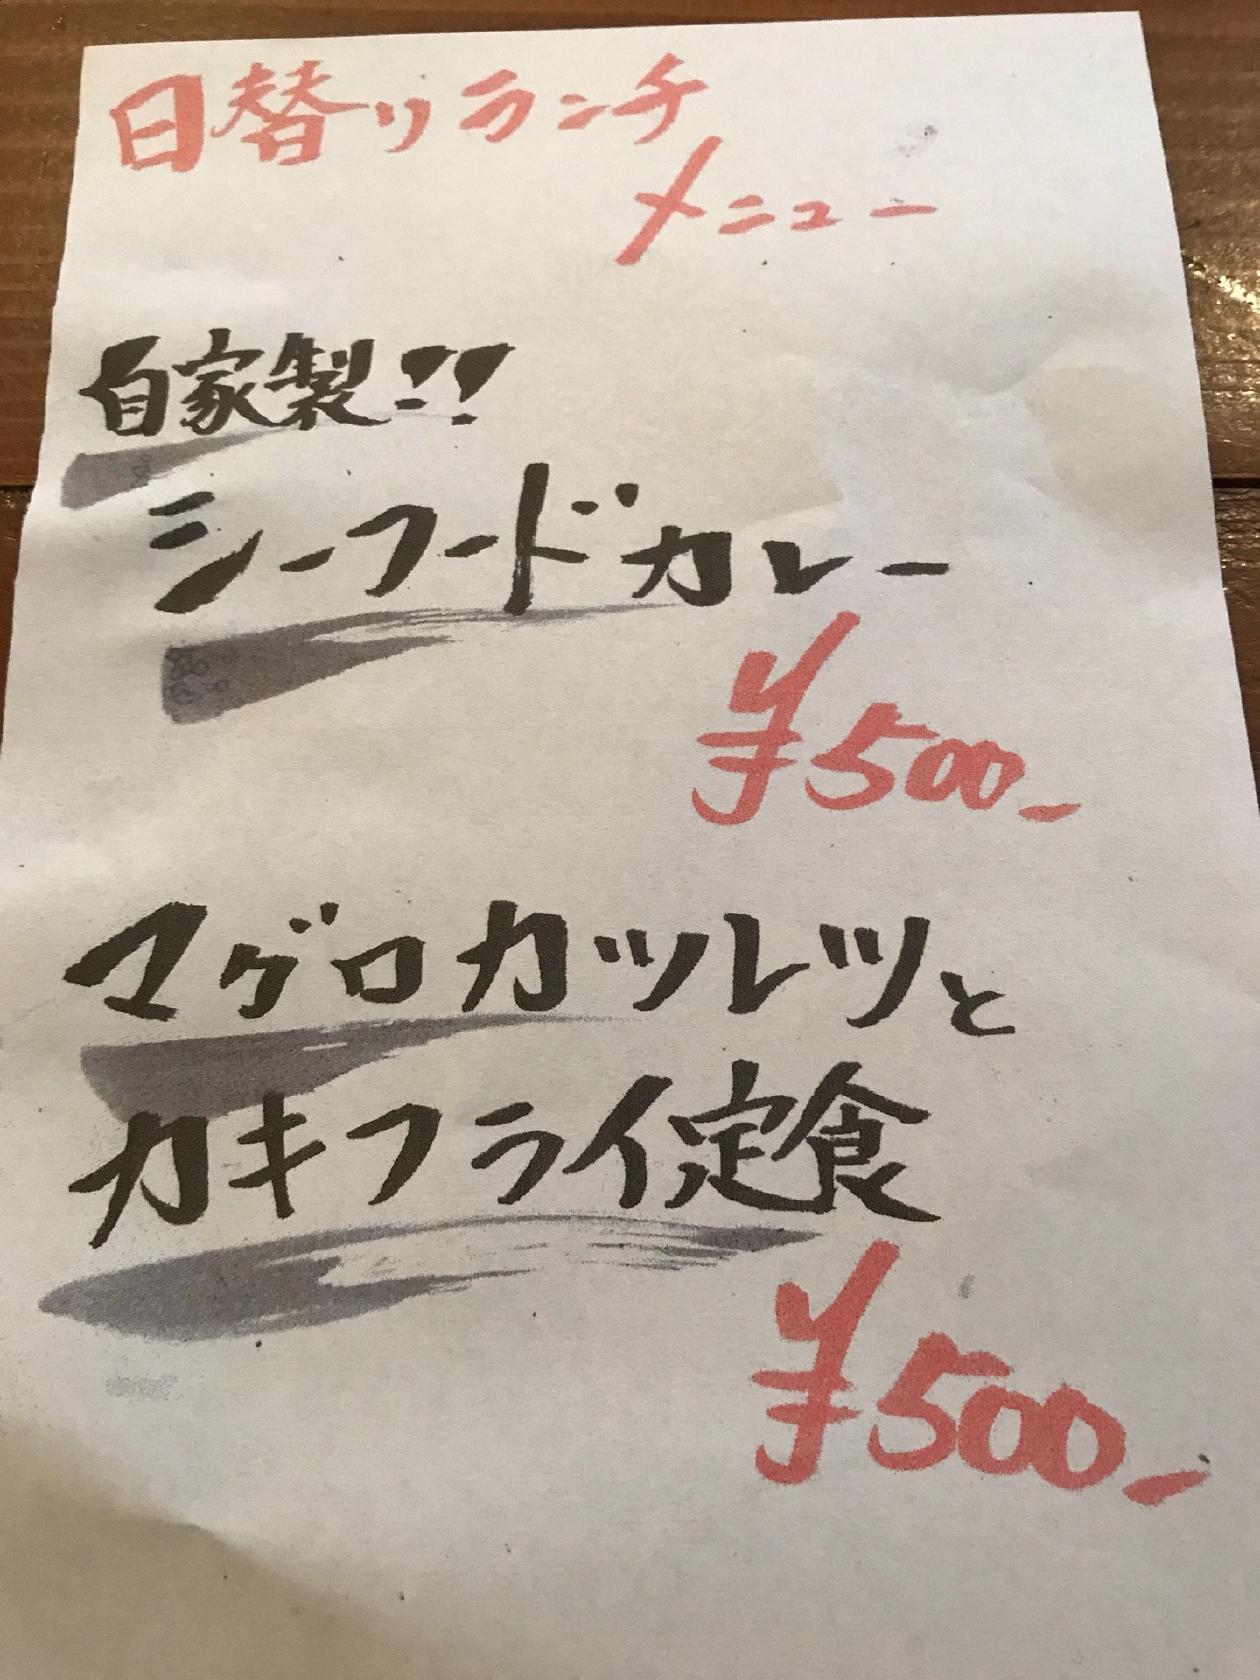 日替りランチ
メニュー
自家製!!
シーフードカレー
¥500-
マグロカツレツと
カキフライ定食
¥500-